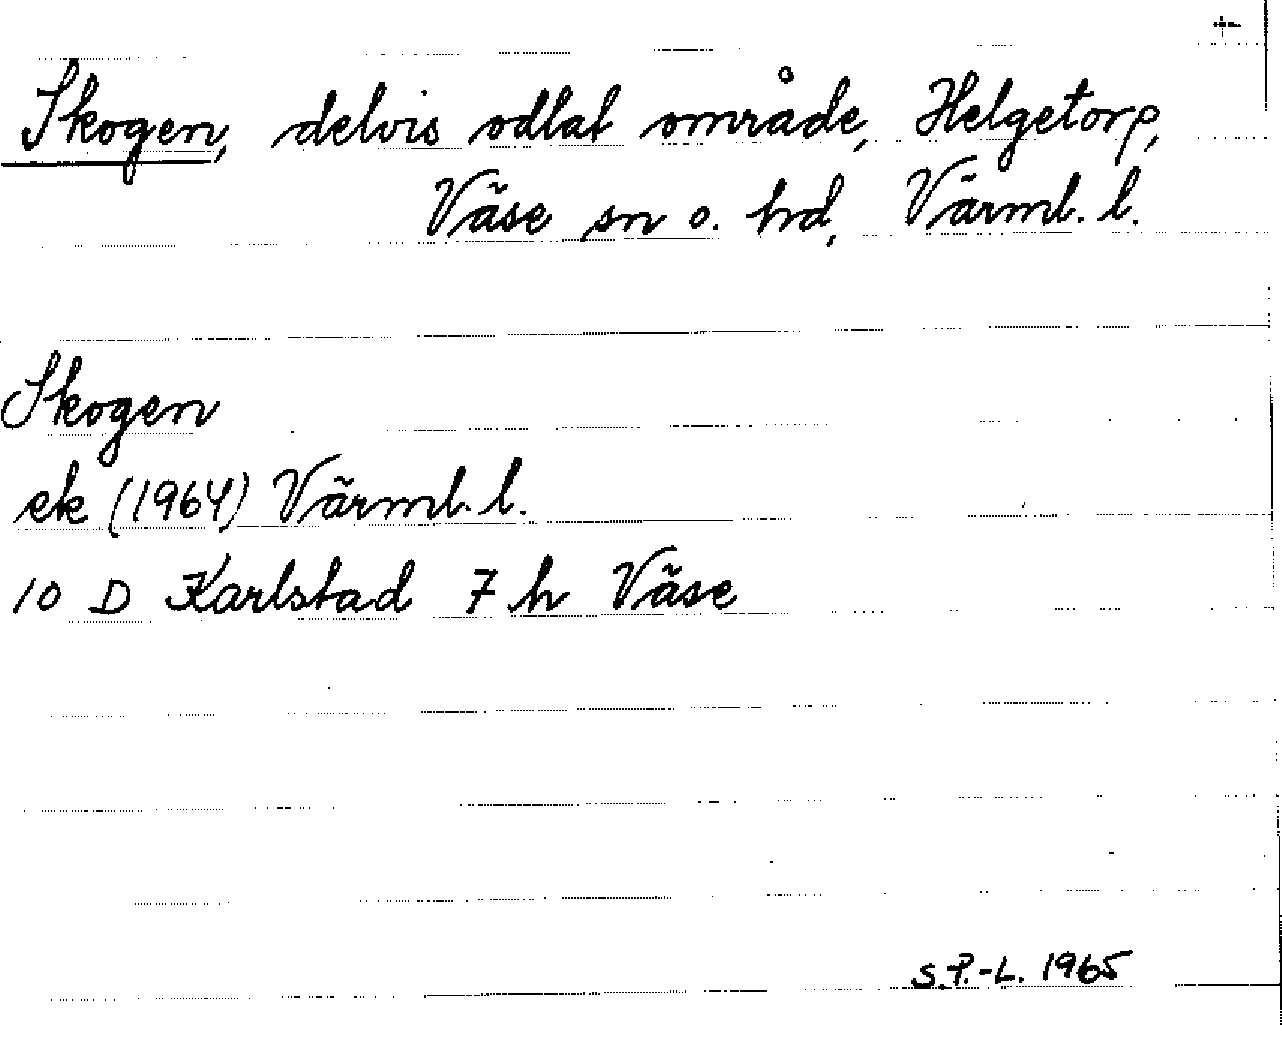 Skogen, delvis odlat område, Helgetorp,
Väse sn o. hd, Värml. l.
Skogen
ek (1964) Värml. l.
10 D Karlstad 7 h Väse
S.P.-L. 1965